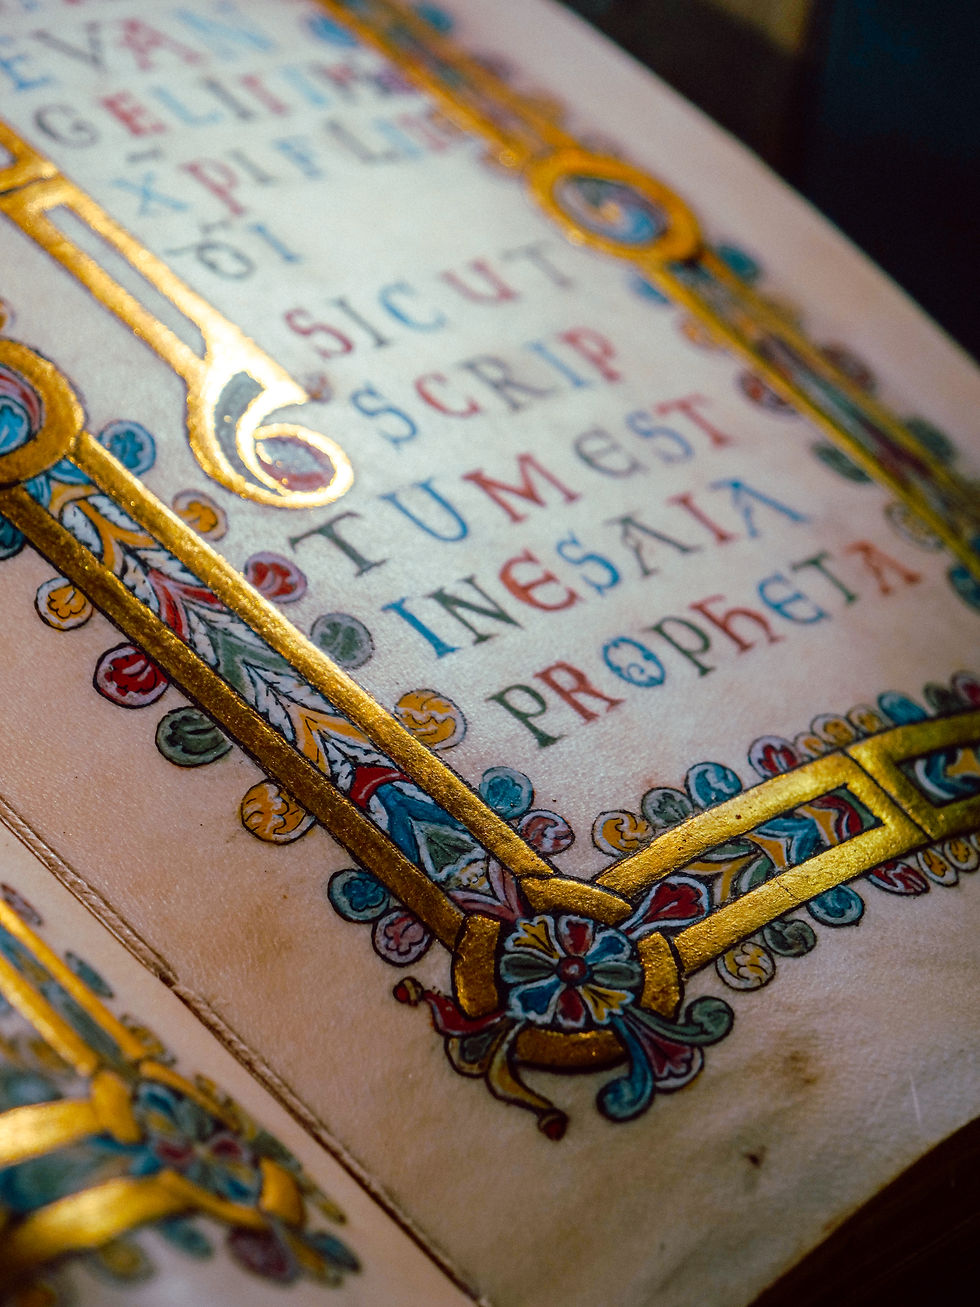 EVAN
GELII
XPI
DI
SICUT
SCRIP
TUM EST
IN ESAIA
PROPHETA